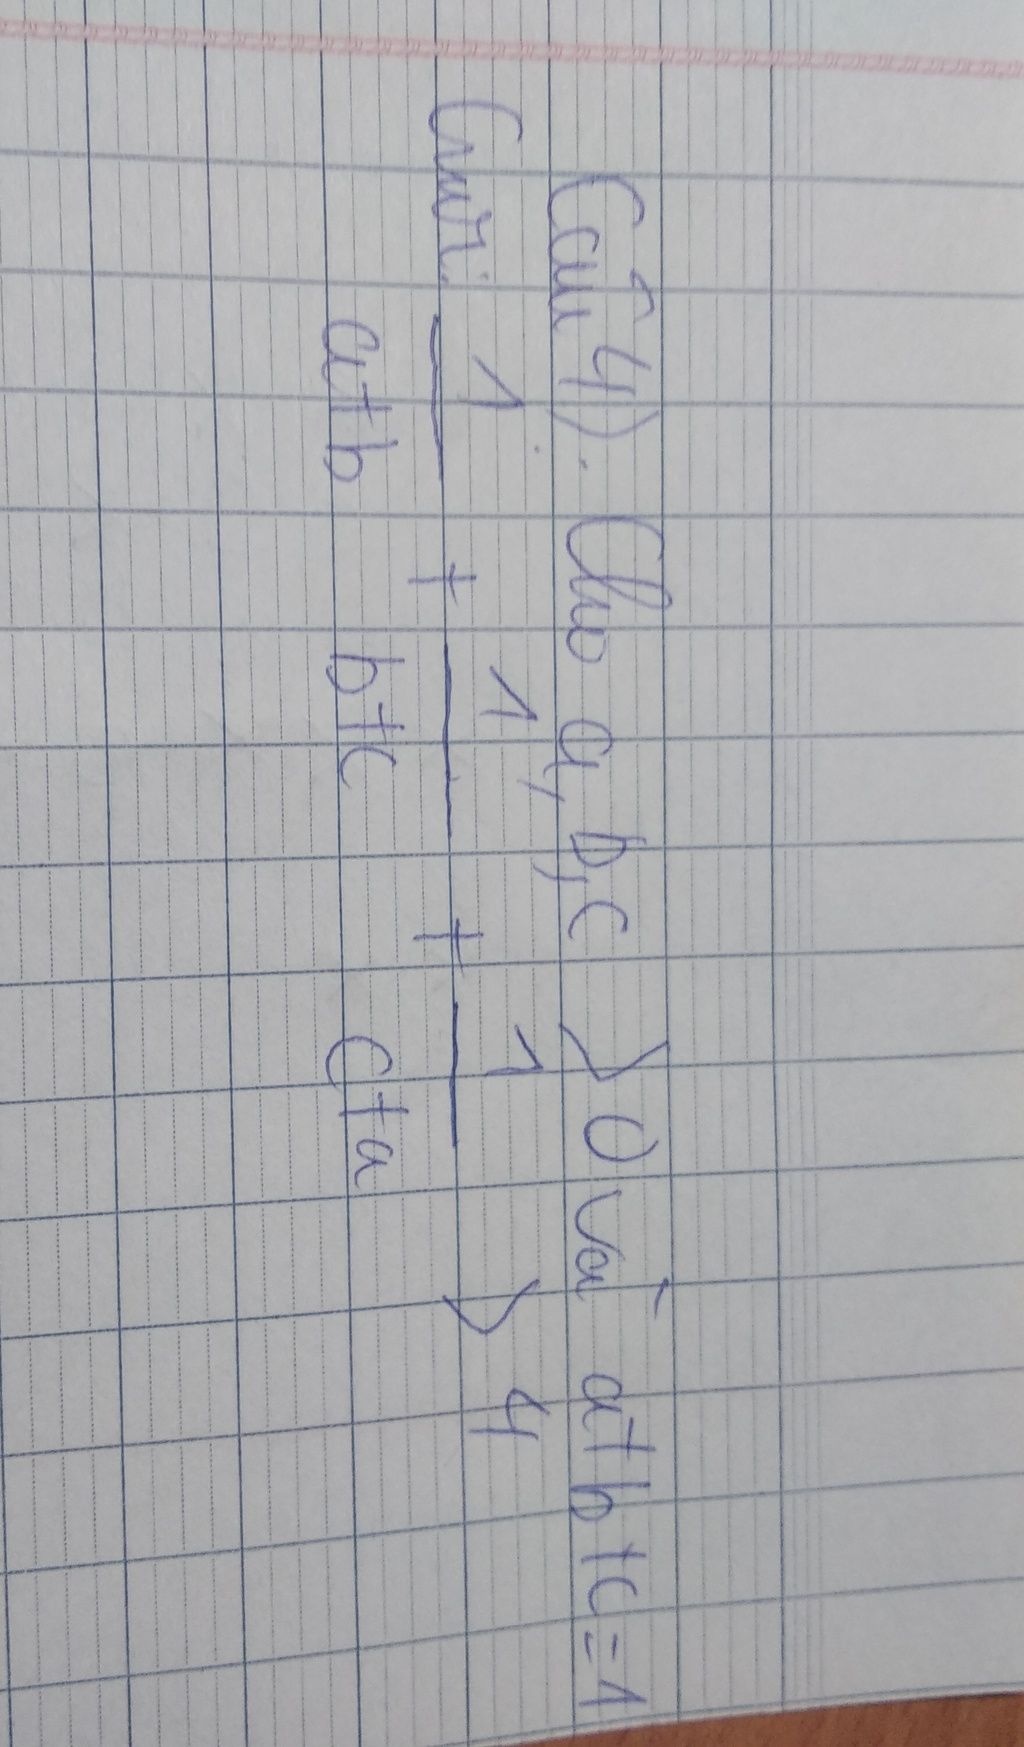 Câu 4). Cho a, b, c > 0 và a+b+c=1
Cmr: 1/(a+b) + 1/(b+c) + 1/(c+a) > 4